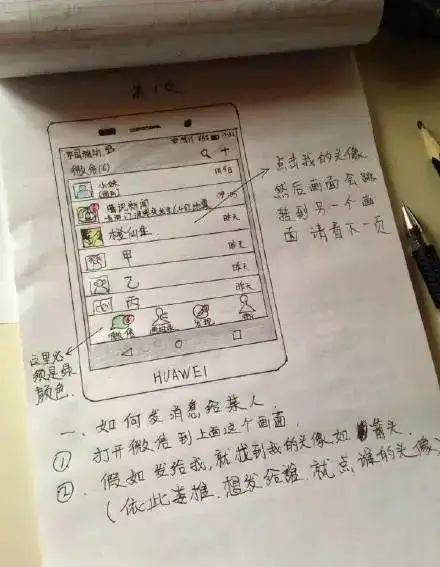 第1页
中国移动
微信(6)
小妹
腾讯新闻
昨天
橙仙生
昨天
甲
昨天
乙
昨天
丙
微信
发现
我
HUAWEI
点击我的头像
然后画面会跳
转到另一个画
面 请看下一页
这里必
须是绿
颜色.
一、如何发消息给某人.
①. 打开微信到上面这个画面.
②. 假如发给我,就找到我的头像如 箭头.
(依此类推.想发给谁.就点谁的头像.